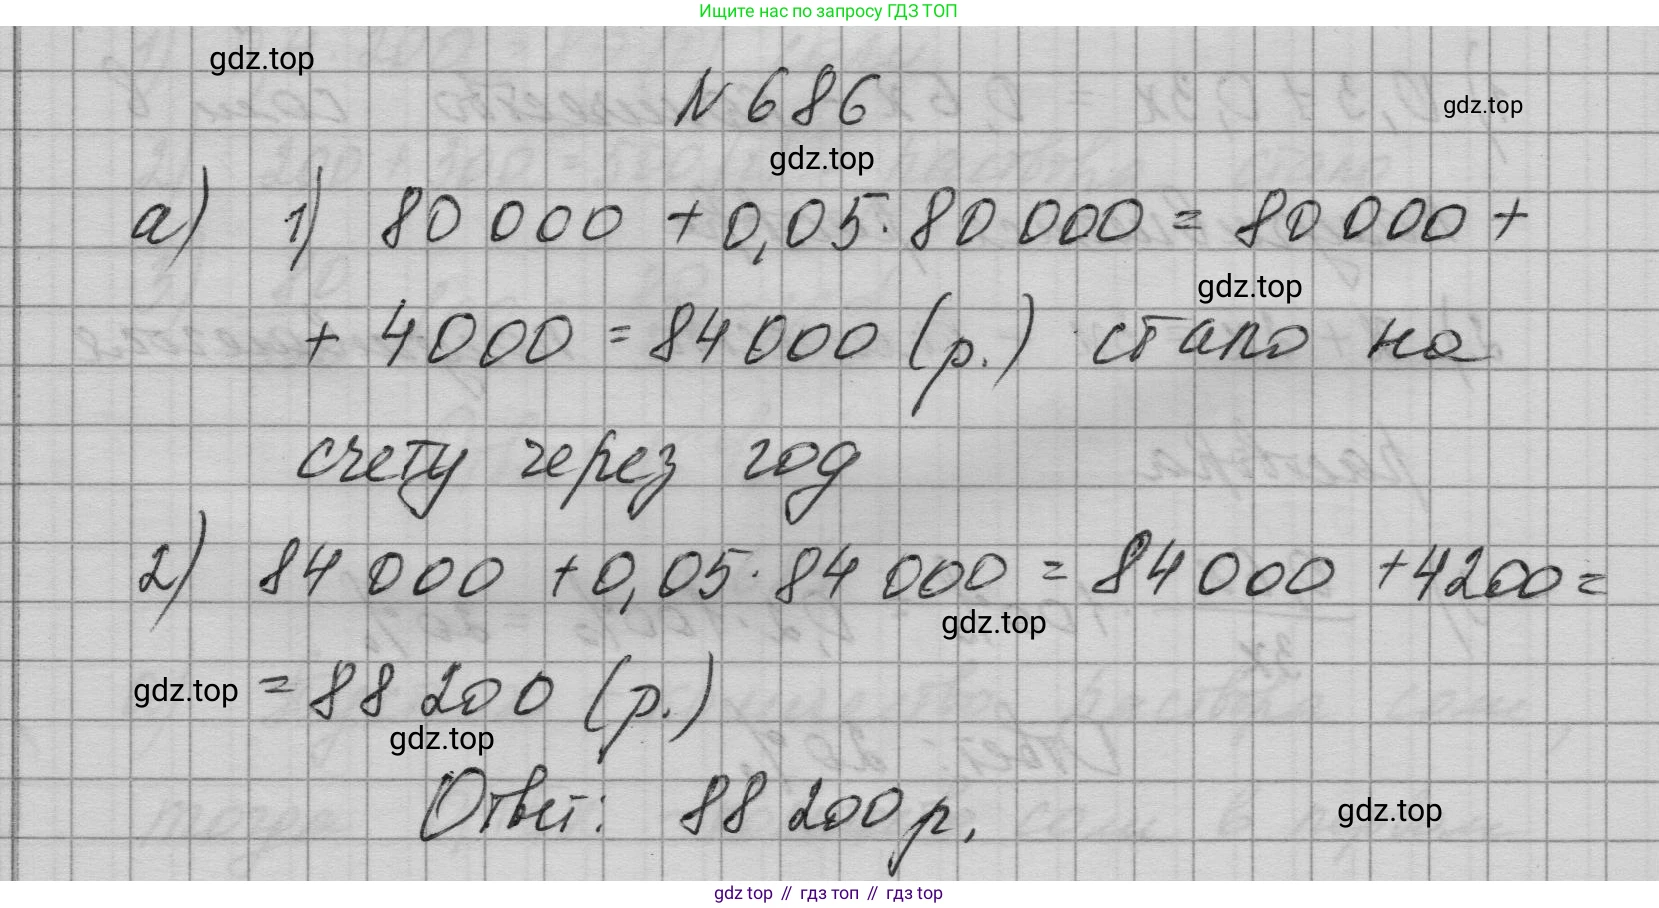 Ищите нас по запросу ГДЗ ТОП
gdz.top
N 686
gdz.top
gdz.top
а) 1) 80 000 + 0,05 · 80 000 = 80 000 +
gdz.top
+ 4000 = 84 000 (р.) стало на
счету через год
2) 84 000 + 0,05 · 84 000 = 84 000 + 4200 =
gdz.top
gdz.top = 88 200 (р.)
gdz.top
Ответ: 88 200 р.
gdz.top
gdz top // гдз топ // gdz top